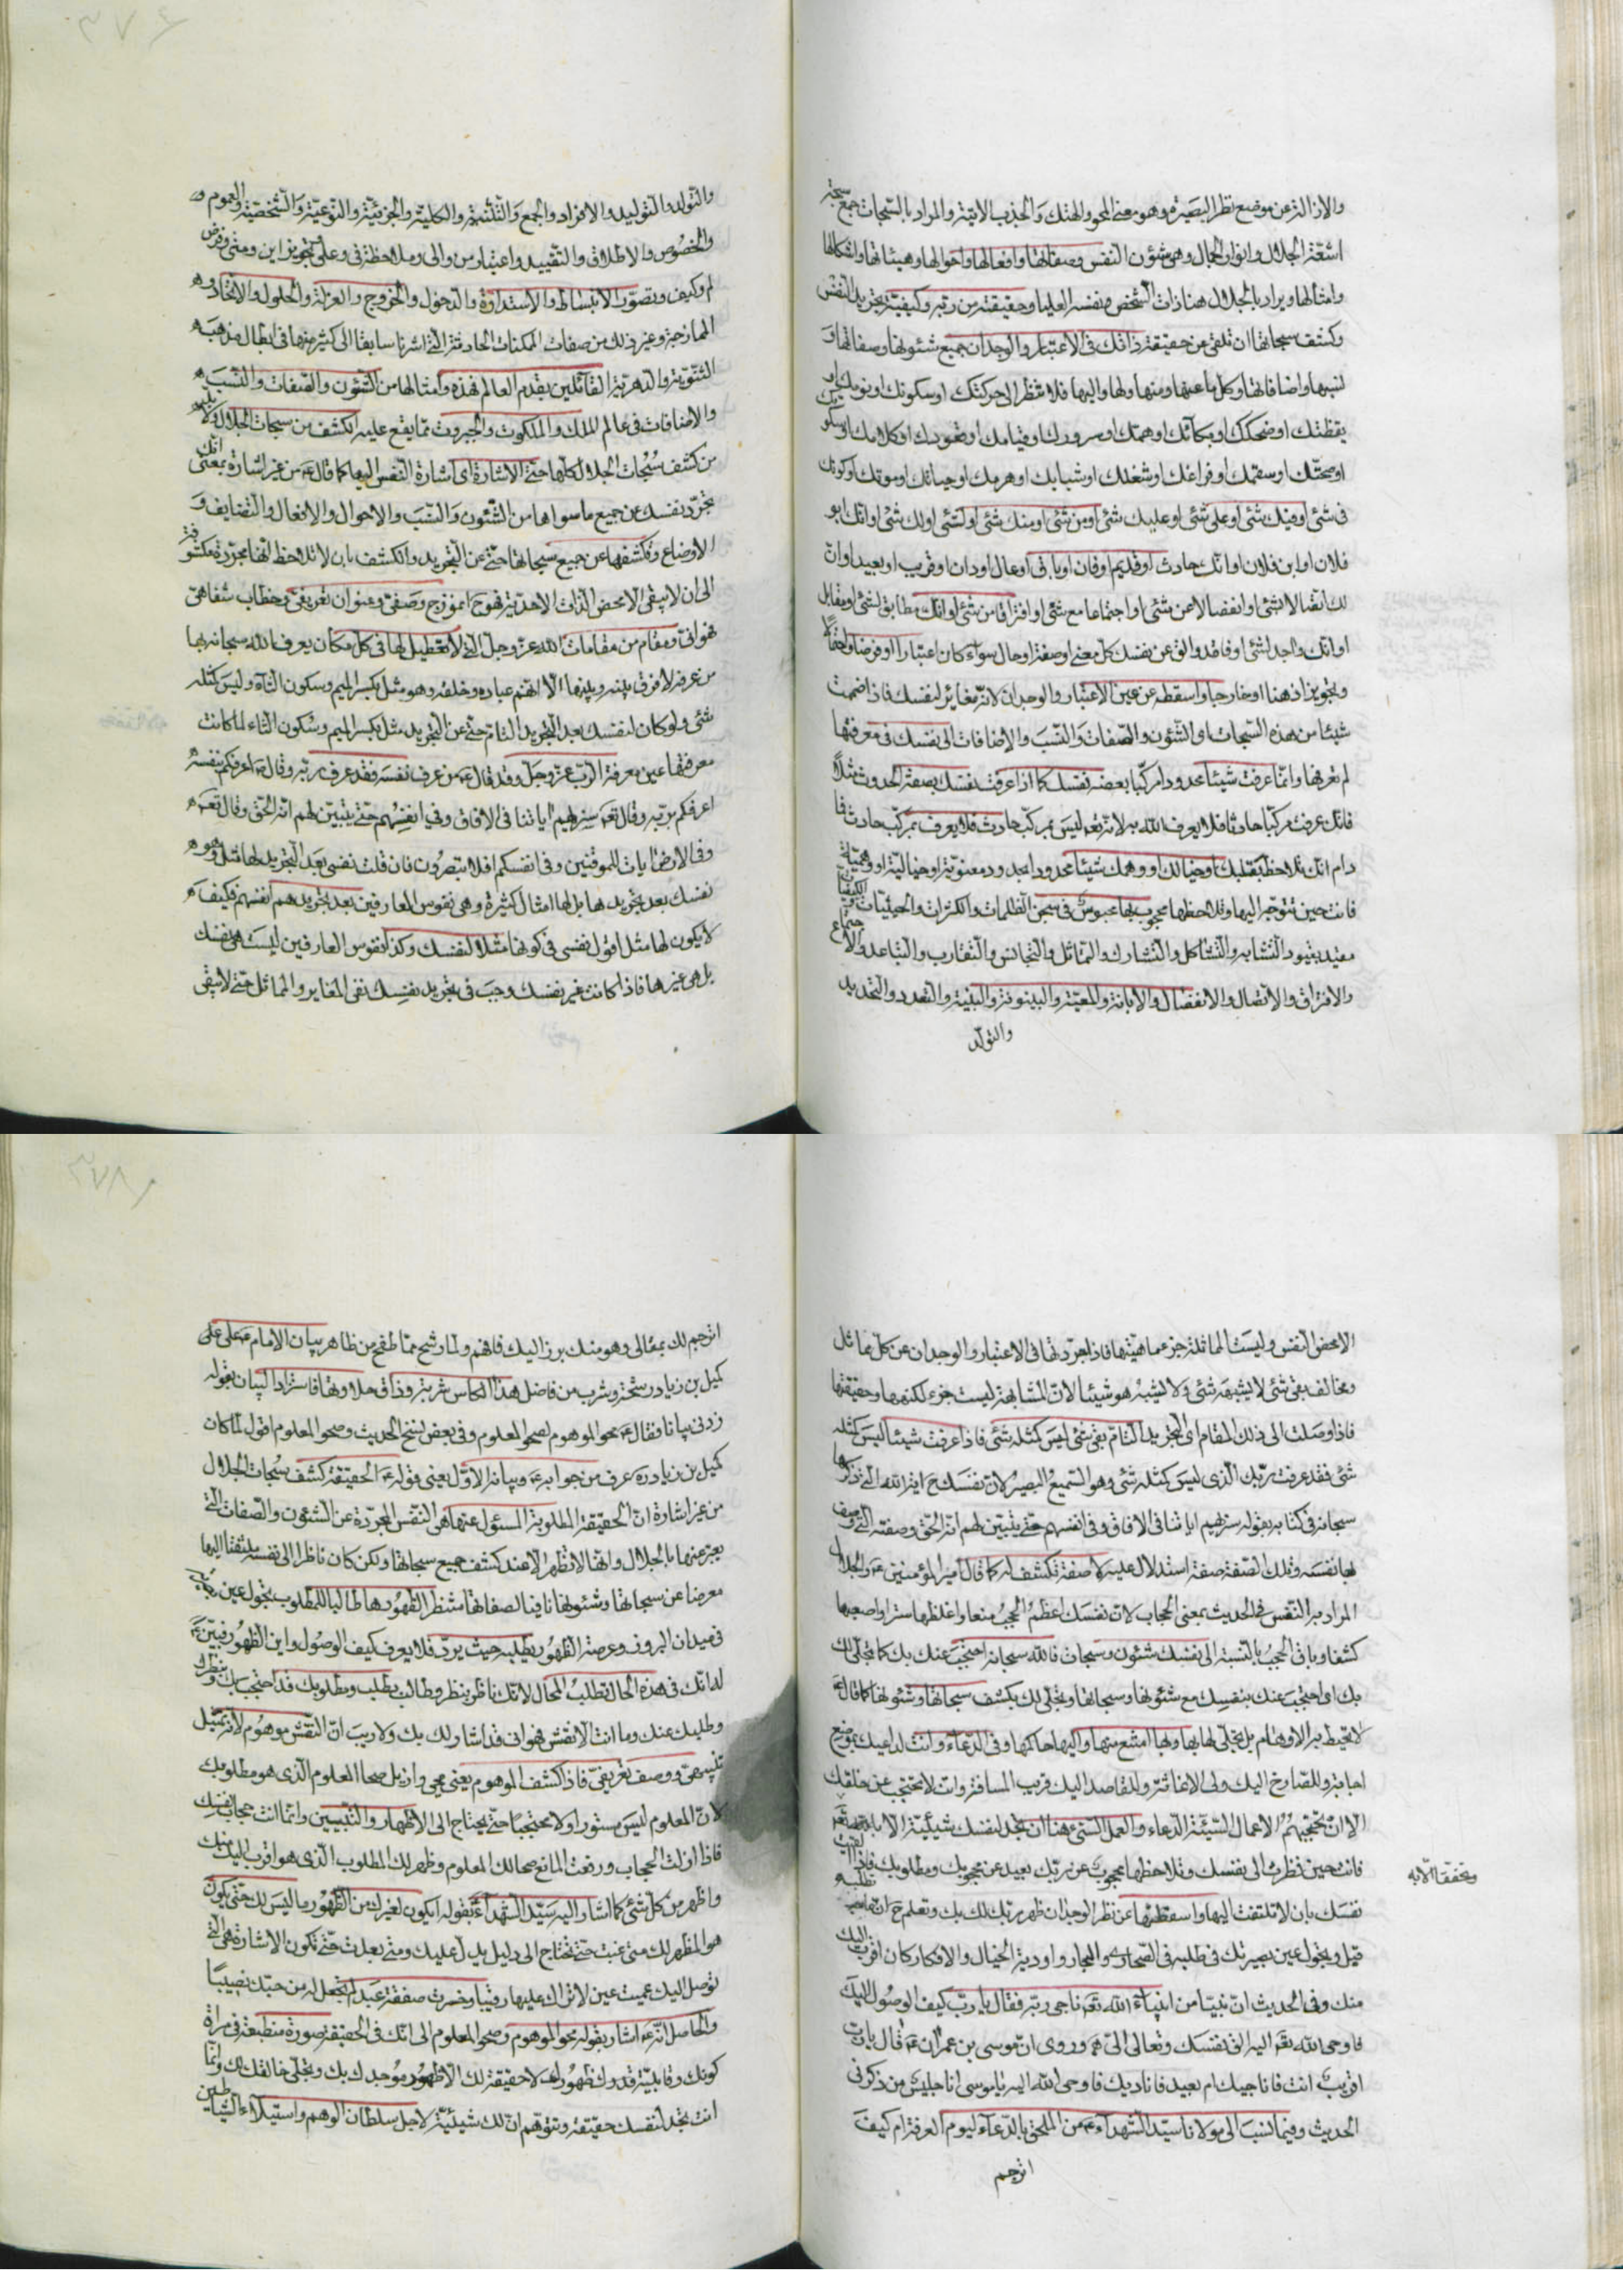 والازالة عن موضع نظر البصيرة وهو معنى المحو والهتك والجذب الاتية والمراد بالسبحات جمع سبحة
اشعة الجلال وانوار الجمال وهي شؤن النفس وصفاتها وافعالها واحوالها وهيئاتها واشكالها
وامثالها ويراد بالجلال هنا ذات الشخص ونفسه العليا وحقيقته من ربه وكيفية تجريد النفس
وكشف سبحاتها ان تلقى عن حقيقة ذاتك في الاعتبار والوجدان جميع شئونها وصفاتها و
نسبها واضافاتها وكل ما عنها ومنها ولها واليها فلا تنظر الى حركتك او سكونك او نومك او
يقظتك او ضحكك او بكائك او همتك او سرورك او قيامك او قعودك او كلامك او سكو
او صحتك او سقمك او فراغك او شغلك او شبابك او هرمك او حياتك او موتك او كونك
في شئ او فيك شئ او على شئ او عليك شئ او من شئ او منك شئ او لشئ او لك شئ او انك ابو
فلان او ابن فلان او انك حادث او قديم او فان او باق او عال او دان او قريب او بعيد او ان
لك اتصالا بشئ او انفصالا عن شئ او اجتماعا مع شئ او افتراقا من شئ او انك مطابق لشئ او مقابل
او انك واجد لشئ او فاقد والق عن نفسك كل معنى او صفة او حال سواء كان اعتبارا او فرضا
وتجويزا ذهنا او خارجا واسقطه عن عين الاعتبار والوجدان لانه مغاير لنفسك فاذا ضممت
شيئا من هذه السبحات او الشئون والصفات والنسب والاضافات الى نفسك في معرفتها
لم تعرفها وانما عرفت شيئا محدودا مركبا بعضه نفسك كما اذا عرفت نفسك بصفة الحدوث مثلا
فانك عرفت مركبا حادثا فلا يعرف الله به لانه تع ليس بمركب حادث فلا يعرف بمركب حادث فما
دام انك تلاحظ بقلبك او خيالك او وهمك شيئا محدودا بحدود معنوية او خيالية او وهمية
فانت حين تتوجه اليها وتلاحظها محجوب بها محبوس في سجن الظلمات والكثرات والحيثيات
مقيد بقيود التشابه والتشاكل والتشارك والتماثل والتجانس والتقارب والتباعد والاجتماع
والافتراق والاتصال والانفصال والابانة والمعية والبينونة والبينية والتعدد والتحديد
والتولد
والتولد والتوليد والافراد والجمع والتثنية والكلية والجزئية والنوعية والشخصية والعموم و
والخصوص والاطلاق والتقييد واعتبار من والى وملاحظة في وعلى وتجويز اين ومتى وفرض
لم وكيف وتصور الانبساط والاستدارة والدخول والخروج والعزلة والحلول والاتحاد و
الممازجة وغير ذلك من صفات الممكنات الحادثة التي اشرنا سابقا الى كثير منها في ابطال مذهب
الثنوية والدهرية القائلين بقدم العالم فهذه وامثالها من الشئون والصفات والنسب
والاضافات في عالم الملك والملكوت والجبروت مما يقع عليه الكشف من سبحات الجلال
من كشف سبحات الجلال كلها حتى الاشارة اي اشارة النفس اليها كما قال ع من غير اشارة بمعنى انك
تجرد نفسك عن جميع ما سواها من الشئون والنسب والاحوال والافعال والتضايف و
الاوضاع وتكشفها عن جميع سبحاتها حتى عن التجريد والكشف بان لا تلاحظ انها مجردة مكشوفة
الى ان لا يبقى الا محض الذات الاحدية فهو ح انموذج وصفي وعنوان تعريفي وخطاب شفاهي
فهواني ومقام من مقامات الله عز وجل التي لا تعطيل لها في كل مكان يعرف الله سبحانه بها
من عرفه لا فرق بينه وبينها الا انهم عباده وخلقه وهو مثل بكسر الميم وسكون الثاء وليس كمثله
شئ ولو كان لنفسك بعد التجريد التام حتى عن التجريد مثل بكسر الميم وسكون الثاء لما كانت
معرفتها عين معرفة الرب عز وجل وقد قال ع من عرف نفسه فقد عرف ربه وقال ع اعرفكم بنفسه
اعرفكم بربه وقال تع سنريهم اياتنا في الافاق وفي انفسهم حتى يتبين لهم انه الحق وقال تع
وفي الارض ايات للموقنين وفي انفسكم افلا تبصرون فان قلت نفسي بعد التجريد لها مثل وهو
نفسك بعد تجريدها بل لها امثال كثيرة وهي نفوس العارفين بعد تجريدهم انفسهم فكيف
لا يكون لها مثل اقول نفسي في كونها مثلا لنفسك وكذا نفوس العارفين ليست هي نفسك
بل هي غيرها فاذا كانت غير نفسك وجب في تجريد نفسك نفي المغاير والمماثل حتى لا يبقى
الا محض النفس وليست المماثلة جزء ماهيتها فاذا جردتها في الاعتبار والوجدان عن كل مماثل
ومخالف بقي شئ لا يشبهه شئ ولا يشبه هو شيئا لان المشابهة ليست جزء لكنهها وحقيقتها
فاذا وصلت الى ذلك المقام اي التجريد التام بقي شئ ليس كمثله شئ فاذا عرفت شيئا ليس كمثله
شئ فقد عرفت ربك الذي ليس كمثله شئ وهو السميع البصير لان نفسك ح اية الله التي ذكرها
سبحانه في كتابه بقوله سنريهم اياتنا في الافاق وفي انفسهم حتى يتبين لهم انه الحق وصفته التي وصف
لها نفسه وتلك الصفة صفة استدلال عليه لا صفة تكشف له كما قال امير المؤمنين ع والجلال
المراد به النفس في الحديث بمعنى الحجاب لان نفسك اعظم الحجب منعا واغلظها سترا واصعبها
كشفا وباقي الحجب بالنسبة الى نفسك شئون وسبحات فالله سبحانه احتجب عنك بك كما تجلى لك
بك اي احتجب عنك بنفسك مع شئونها وسبحاتها وتجلى لك بكشف سبحاتها وشئونها كما قال ع
لا تحيط به الاوهام بل تجلى لها بها وبها امتنع منها واليها حاكمها وفي الدعاء وانت لداعيك بموضع
اجابة وللصارخ اليك ولي الاغاثة وللقاصد اليك قريب المسافة وانك لا تحتجب عن خلقك
الا ان تحجبهم الاعمال السيئة الدعاء والعمل السئ هنا ان تجد لنفسك شيئية الا بالله تع
وتحققا الا به
فانت حين نظرت الى نفسك وتلاحظها محجوب عن ربك بعيد عن محبوبك ومطلوبك فاذا
نفسك بان لا تلتفت اليها واسقطتها عن نظر الوجدان ظهر ربك لك بك وتعلم ح ان
قبل وتحول عين بصيرتك في طلبه في الصحاري والبحار واودية الخيال والافكار كان اقرب اليك
منك وفي الحديث ان نبيا من انبياء الله تع ناجى ربه فقال يا رب كيف الوصول اليك
فاوحى الله تع اليه الق نفسك وتعال الي وروي ان موسى بن عمران ع قال يا رب
اقريب انت فاناجيك ام بعيد فاناديك فاوحى الله اليه يا موسى انا جليس من ذكرني
الحديث وفيما نسب الى مولانا سيد الشهداء ع من الملحق بالدعاء ليوم العرفة ام كيف
اترجم
اترجم لك بمقالي وهو منك برز اليك فافهم ولما رشح مما طفح من ظاهر بيان الامام ع على
كميل بن زياد رشحة وشرب من فاضل هذا الكاس شربة وذاق حلاوتها فاستزاد البيان بقوله
زدني بيانا فقال ع محو الموهوم لصحو المعلوم وفي بعض نسخ الحديث وصحو المعلوم اقول لما كان
كميل بن زياد ره عرف من جوابه ع وبيانه الاول يعني قوله ع الحقيقة كشف سبحات الجلال
من غير اشارة ان الحقيقة المطلوبة المسئول عنها هي النفس المجردة عن الشئون والصفات التي
يعبر عنها بالجلال وانها لا تظهر الا عند كشف جميع سبحاتها ولكن كان ناظرا الى نفسه ملتفتا اليها
معرضا عن سبحاتها وشئونها نافيا لصفاتها منتظرا لظهورها طالبا للمطلوب يتجول عين
في ميدان البروز وعرصة الظهور يطلبه حيث يرى فلا يعرف كيف الوصول واين الظهور فبين ع
له انك في هذه الحال تطلب المحال لانك ناظر بنظر وطالب بطلب ومطلوبك قد احتجب بك
وطلبك عنك وما انت الا نقش فهواني قد اشار لك بك ولا ريب ان النقش موهوم لانه تمثيل
تنبيهي ووصف تعريفي فاذا كشف الموهوم يعني محي وازيل صحا المعلوم الذي هو مطلوبك
لان المعلوم ليس مستورا ولا محتجبا حتى يحتاج الى الاظهار والتبيين وانما انت حجاب نفسك
فاذا ازلت الحجاب ورفعت المانع صحا لك المعلوم وظهر لك المطلوب الذي هو اقرب اليك منك
واظهر من كل شئ كما اشار اليه سيد الشهداء ع بقوله ايكون لغيرك من الظهور ما ليس لك حتى يكون
هو المظهر لك متى غبت حتى تحتاج الى دليل يدل عليك ومتى بعدت حتى تكون الاشارة هي التي
توصل اليك عميت عين لا تراك عليها رقيبا وخسرت صفقة عبد لم تجعل له من حبك نصيبا
والحاصل انه ع اشار بقوله محو الموهوم وصحو المعلوم الى انك في الحقيقة صورة منطبعة في مراة
كونك وقابلية قدرك ظهورك لا حقيقة لك الا ظهور موجدك بك وتجلي خالقك لك وانما
انت تجد لنفسك حقيقة وتتوهم ان لك شيئية لاجل سلطان الوهم واستيلاء الشياطين